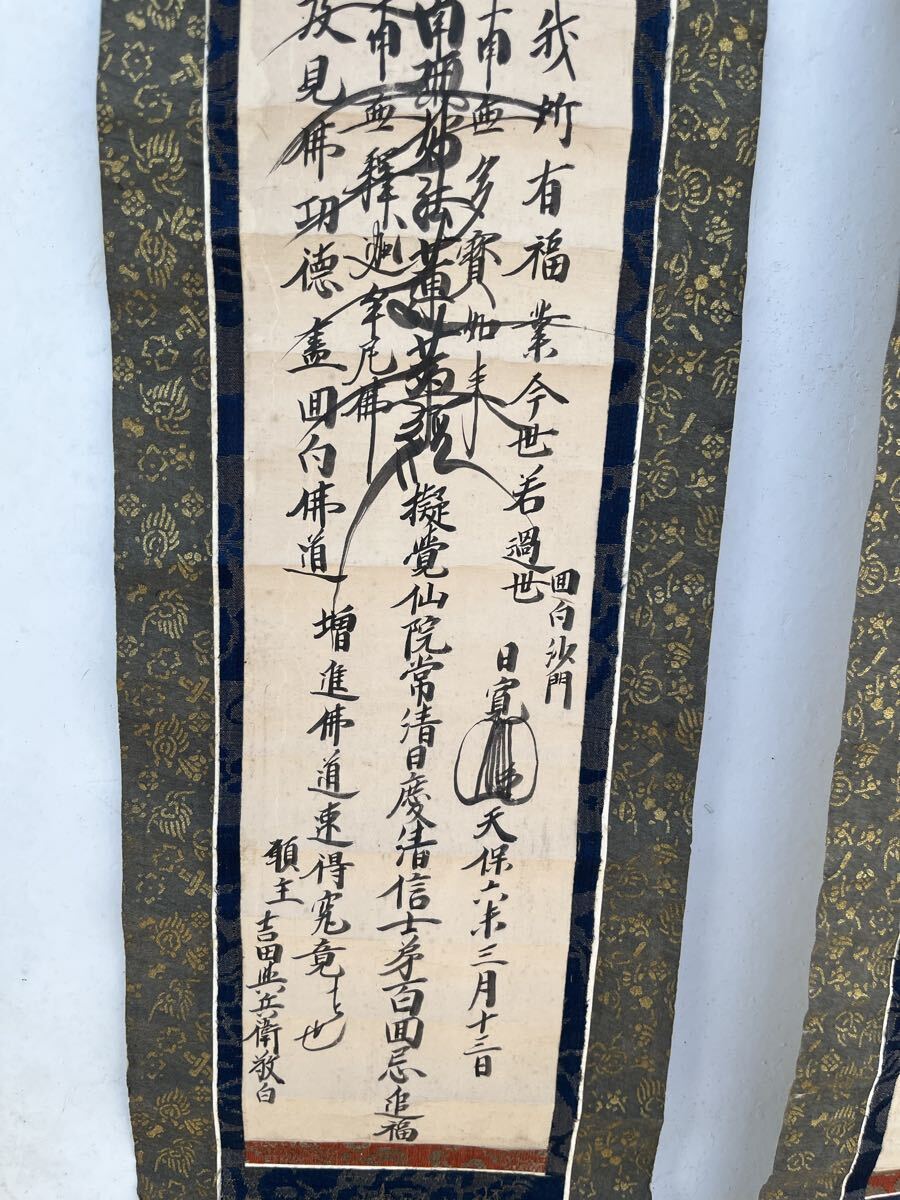 我所有福業今世若過世
回向沙門
日寛
天保六未三月十三日
南無多寳如来
南無妙法蓮華経
擬覚仙院常清日慶清信士第百回忌追福
南無釋迦牟尼佛
増進佛道速得究竟と也
及見佛功德盡回向佛道
願主 吉田與兵衛敬白